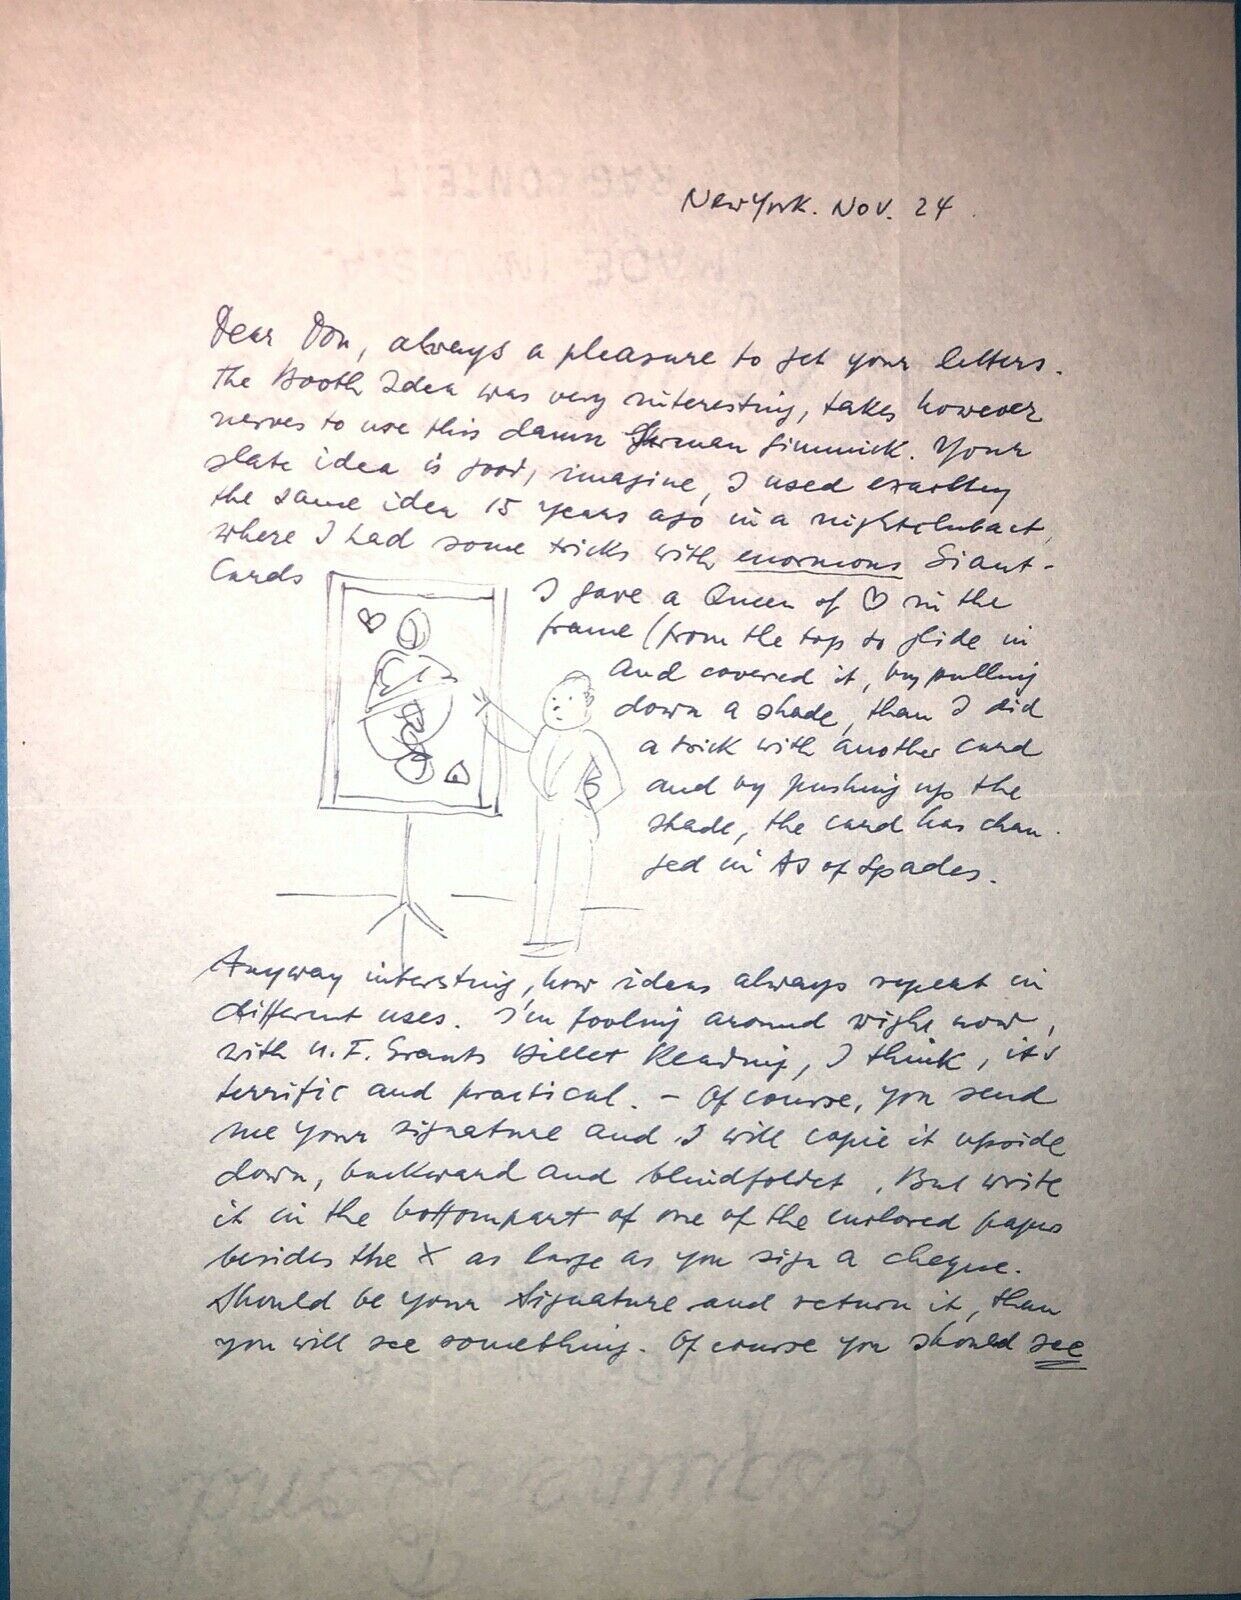 New York. Nov. 24
Dear Don, always a pleasure to get your letters.
the Booth Idea was very interesting, takes however
nerves to use this damn German gimmick. Your
slate idea is good, imagine, I used exactly
the same idea 15 years ago in a nightclubact,
where I had some tricks with enormous Giant-
Cards
I gave a Queen of ♡ in the
frame (from the top to glide in
and covered it, by pulling
down a shade, than I did
a trick with another card
and by pushing up the
shade, the card has chan-
ged in As of Spades.
Anyway interesting, how ideas always repeat in
different uses. I'm fooling around right now,
with U. F. Grants Billet Reading, I think, it's
terrific and practical. - Of course, you send
me your signature and I will copie it upside
down, backward and blindfoldet. But write
it in the bottompart of one of the enclosed papers
besides the X as large as you sign a cheque.
Should be your Signature and return it, than
you will see something. Of course you should see
RAG CONTENT
MADE IN U.S.A.